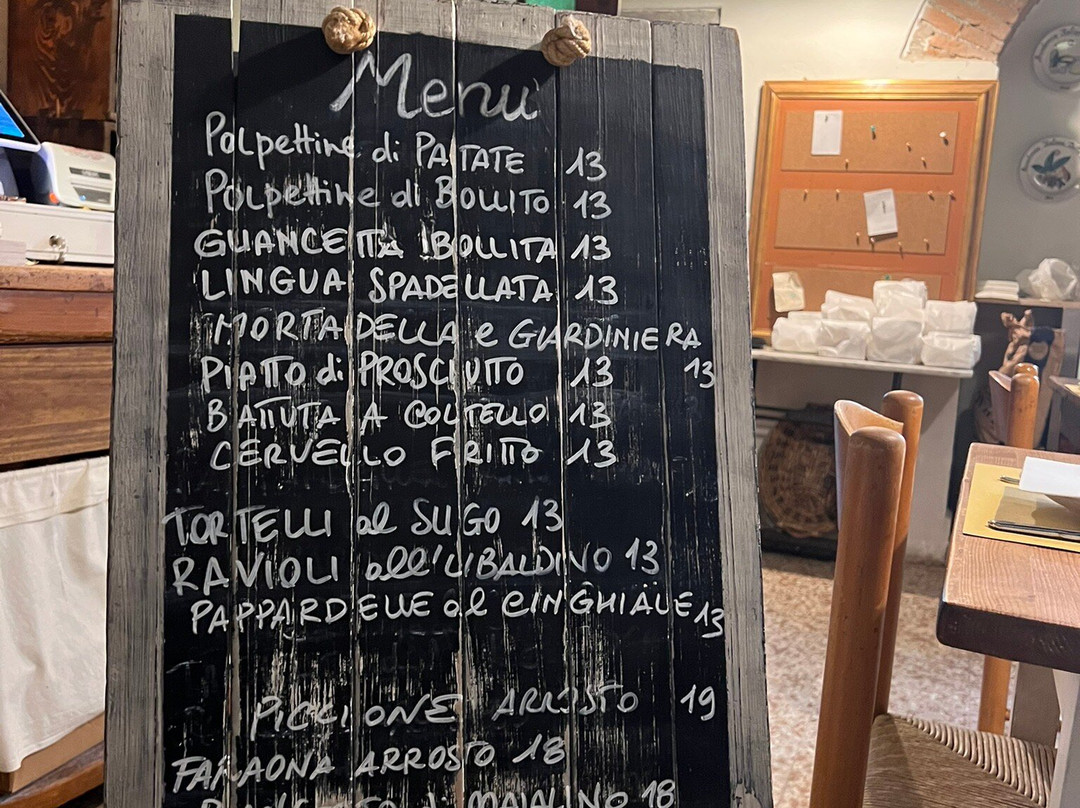 Menu
Polpettine di PATATE 13
Polpettine di BOLLITO 13
GUANCETTA BOLLITA 13
LINGUA SPADELLATA 13
MORTADELLA e GIARDINIERA 13
PIATTO di PROSCIUTTO 13
BATTUTA A COLTELLO 13
CERVELLO FRITTO 13
TORTELLI al SUGO 13
RAVIOLI all'UBALDINO 13
PAPPARDELLE al CINGHIALE 13
PICCIONE ARROSTO 19
FARAONA ARROSTO 18
MAIALINO 18